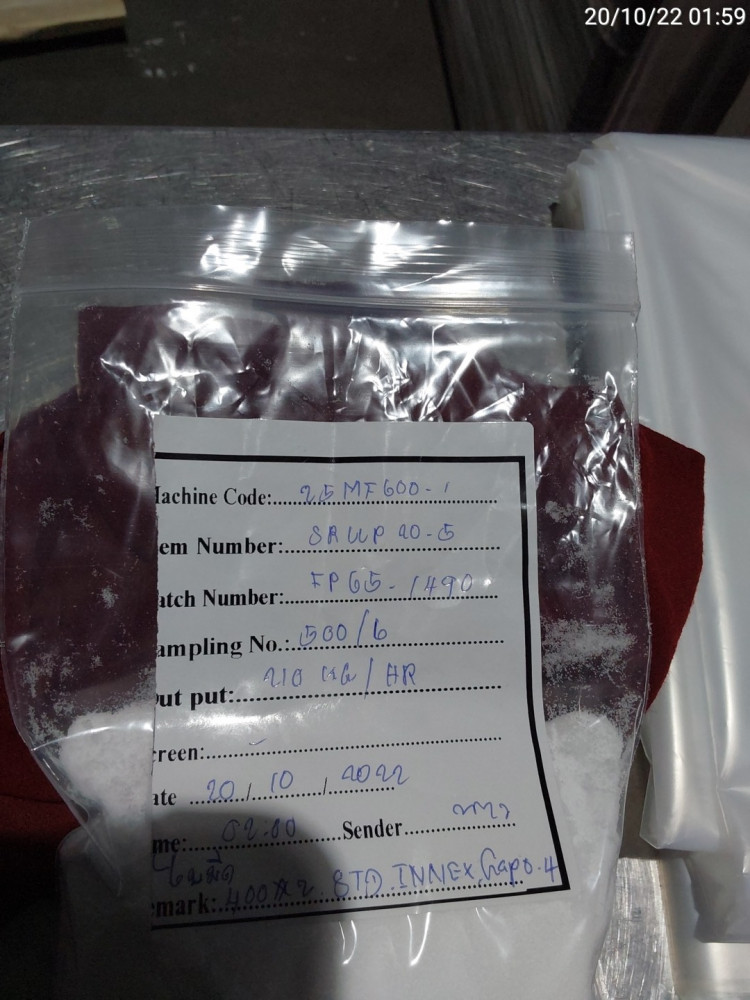 20/10/22 01:59
achine Code: 25MF600-1
em Number: SRUP 20-5
atch Number: FP65-1490
ampling No.: 500/6
ut put: 210 KG/HR
reen: -
ate 20/10/2022
me: 02.00 Sender
ใบมีด
mark: 400*2 STD.INNEX, Gap 0.4